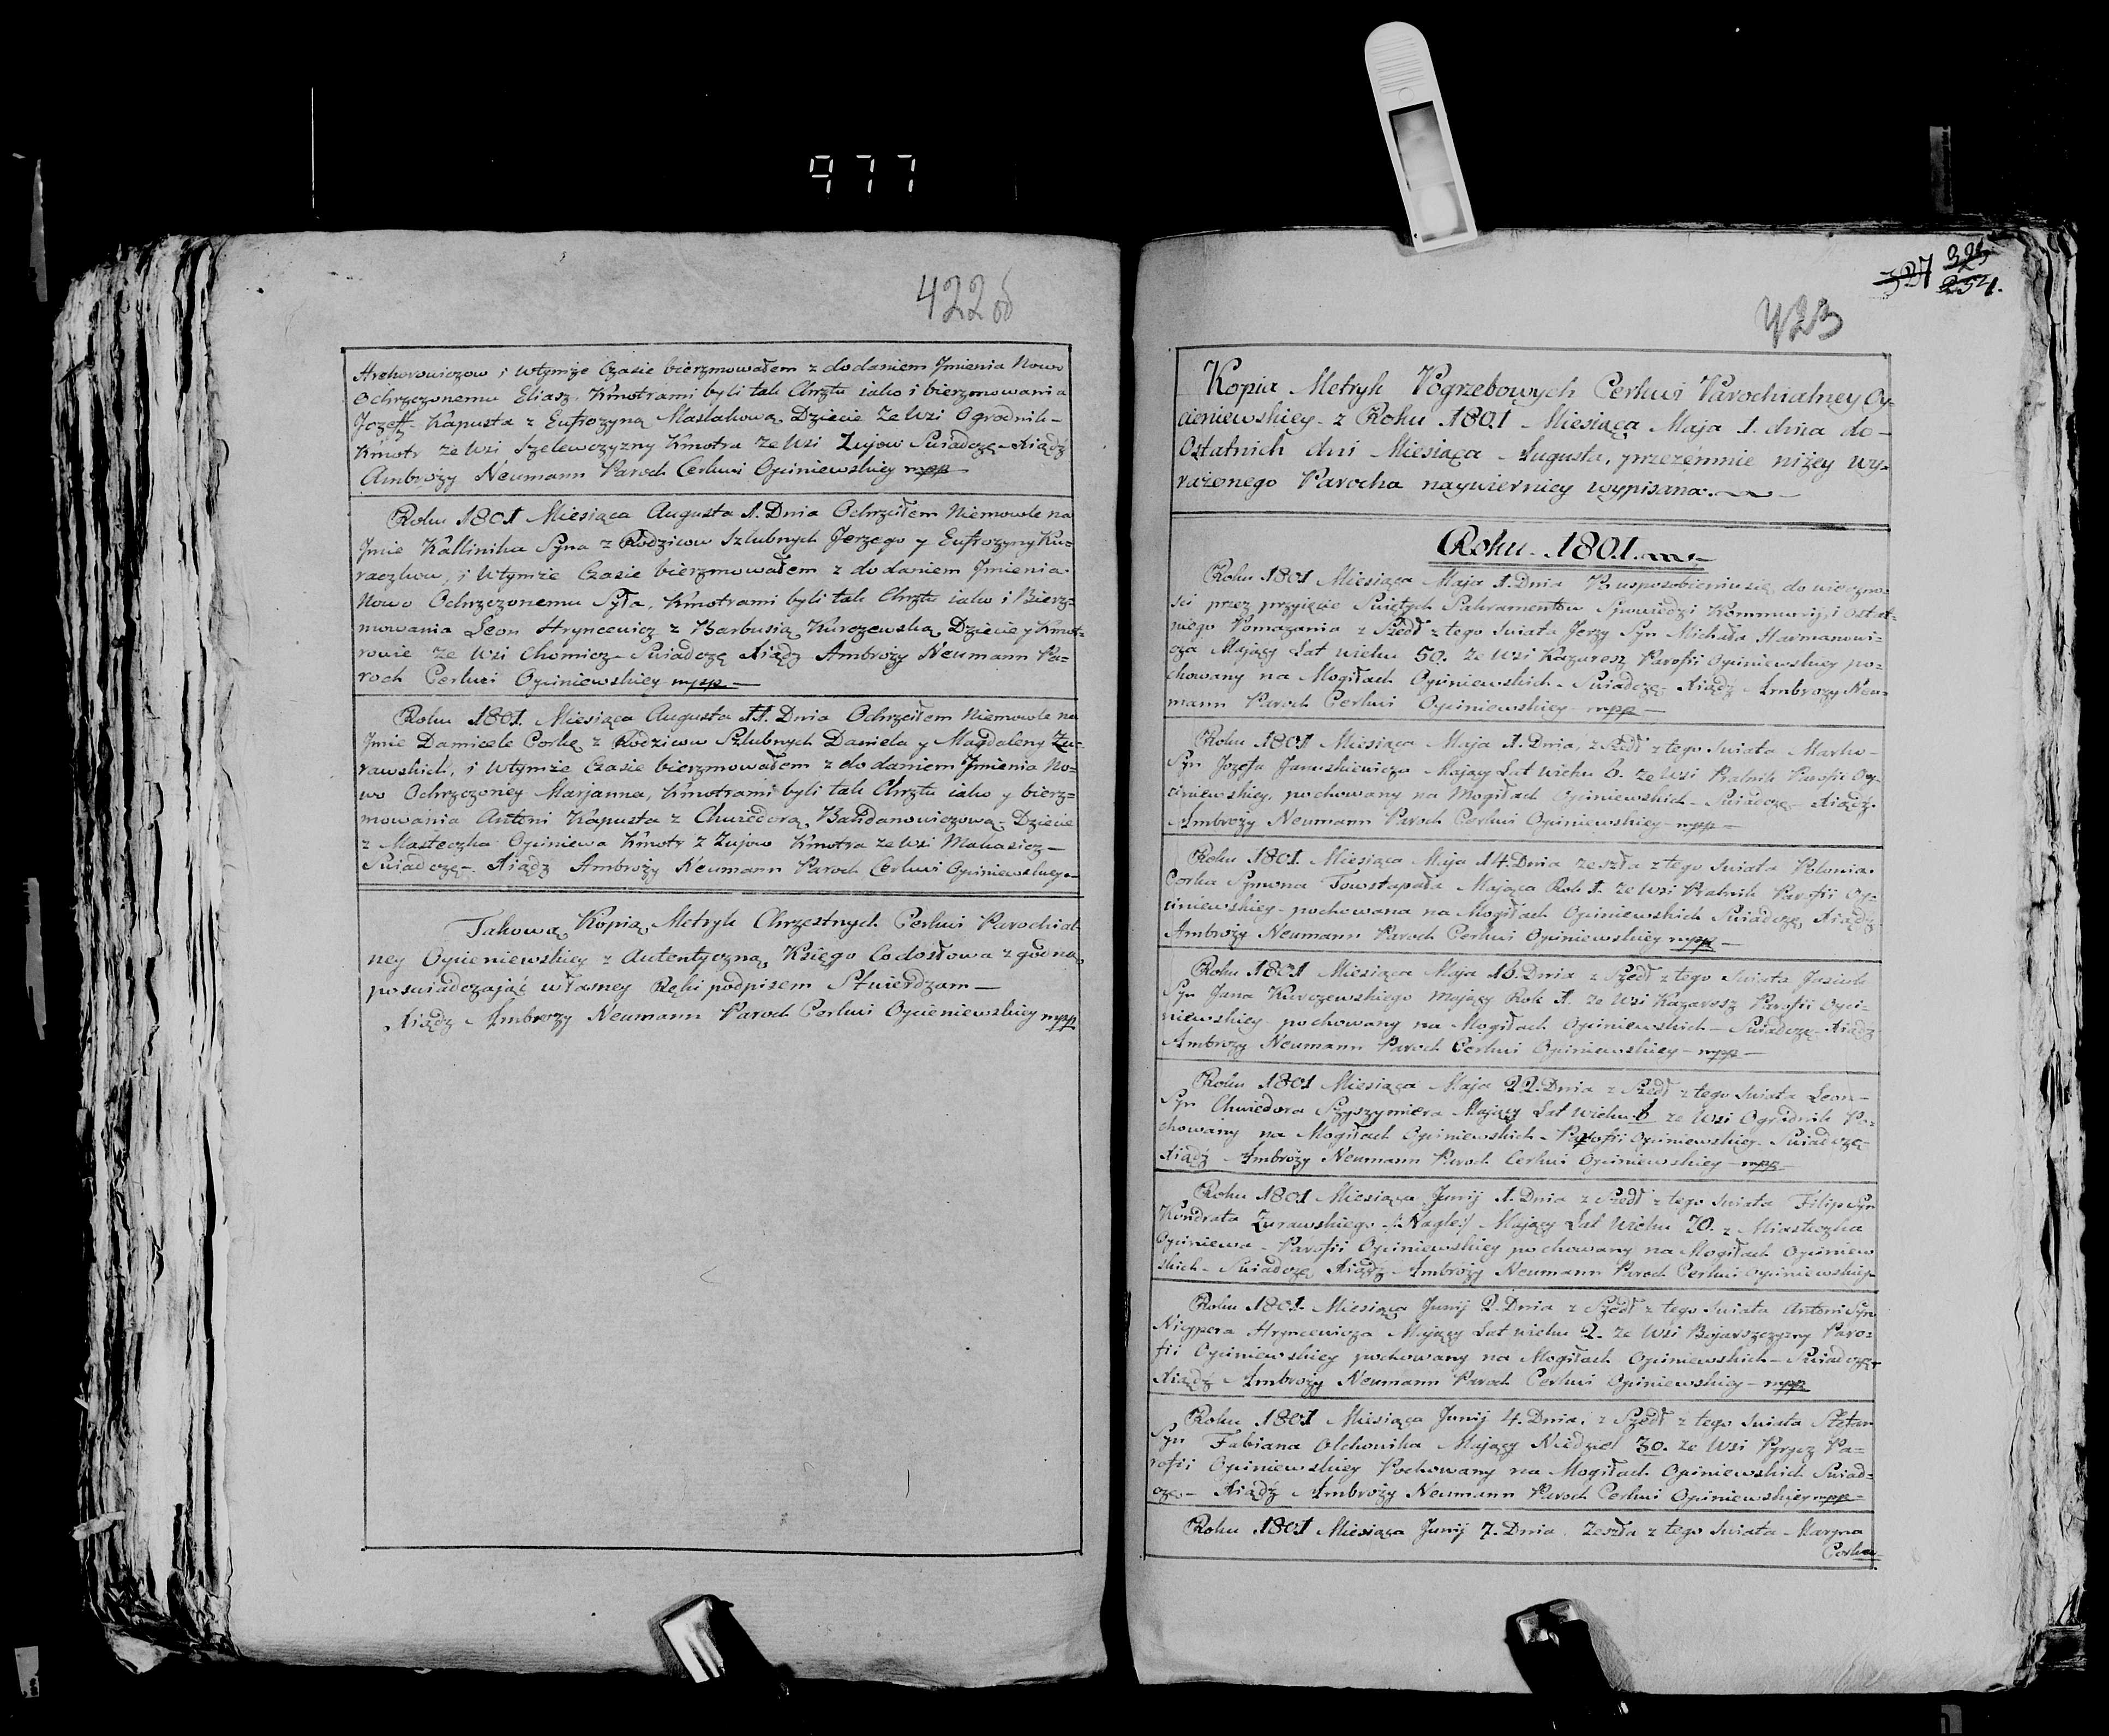 977
422 об
Hrehorowiczow i wtymże Czasie bierzmowałem z dodaniem Jmienia Nowo
Ochrzczonemu Eliasz, Kmotrami byli tak Chrztu iako i bierzmowania
Jozeff Kapusta z Eufrozyną Maslakową Dziecie ze Wsi Ogrodnik-
Kmotr ze Wsi Szelewczyzny Kmotra ze Wsi Zujow Swiadczę - Xiądz
Ambroży Neumann Paroch Cerkwi Opiniewskiey mpp
Roku 1801 Miesiąca Augusta 1. Dnia Ochrzciłem Niemowle na
Jmie Kallinika Syna z Rodzicow Szlubnych Jerzego y Eufrozyny Ku=
raczkow, i wtymże Czasie bierzmowałem z dodaniem Jmienia
Nowo Ochrzczonemu Syła, Kmotrami byli tak Chrztu iako i Bierz=
mowania Leon Hryncewicz z Barbusią Kurczewską Dziecie y Kmot=
rowie ze Wsi Chomicz - Swiadczę Xiądz Ambroży Neumann Pa=
roch Cerkwi Opiniewskiey mpp
Roku 1801. Miesiąca Augusta 11. Dnia Ochrzciłem Niemowle na
Jmie Damicele Corkę z Rodzicow Szlubnych Daniela y Magdaleny Żu=
rawskich, i wtymże Czasie bierzmowałem z dodaniem Jmienia No=
wo Ochrzczoney Marjanna, Kmotrami byli tak Chrztu iako y bierz=
mowania Antoni Kapusta z Chwiedorą Bahdanowiczową - Dziecie
z Miasteczka Opiniewa Kmotr z Zujow Kmotra ze Wsi Makasicz -
Swiadczę - Xiądz Ambroży Neumann Paroch Cerkwi Opiniewskiey -
Takową Kopią Metryk Chrzestnych Cerkwi Parochial
ney Opieniewskiey z Autentyczną Księgo Codosłowa zgodną
poswiadczaiąć własney Ręki podpisem Stwierdzam -
Xiądz Ambrozy Neumann Paroch Cerkwi Opieniewskiey mpp
327
423
Kopia Metryk Pogrzebowych Cerkwi Parochialney Op-
ieniewskiey z Roku 1801 Miesiąca Maja 1. dnia do -
Ostatnich dni Miesiąca Augusta, przezemnie niżey wy-
rażonego Parocha naywierniey wypisana.
Roku 1801
Roku 1801 Miesiąca Maja 1. Dnia Pousposobieniu się do wieczno-
sci przez przyięcie Swiętych Sakramentow Spowiedzi Kommunij, i Ostat-
niego Pomazania z Szedł z tego Swiata Jerzy Syn Michała Harmanowi-
cza Maiący Lat wieku 50. ze Wsi Kazarosz Parafii Opiniewskiey po=
chowany na Mogiłach Opiniewskich - Swiadczę - Xiądz Ambroży Neu-
mann Paroch Cerkwi Opiniewskiey mpp -
Roku 1801 Miesiąca Maja 1. Dnia, z Szedł z tego Swiata Marko -
Syn Jozefa Januszkiewicza Maiący Lat wieku 6. ze Wsi Pratnik Parafii Op-
iniewskiey, pochowany na Mogiłach Opiniewskich - Swiadczę - Xiądz
Ambroży Neumann Paroch Cerkwi Opiniewskiey mpp -
Roku 1801. Miesiąca Maja 14. Dnia zeszła z tego Swiata Polonia
Corka Symona Towstapała Maiąca Rok 1. ze Wsi Pratnik Parofii Op-
iniewskiey - pochowana na Mogiłach Opiniewskich Swiadczę, Xiądz
Ambroży Neumann Paroch Cerkwi Opiniewskiey mpp -
Roku 1801 Miesiąca Maja 16. Dnia z Szedł z tego Swiata Jasiuk
Syn Jana Kurczewskiego maiący Rok 1. ze Wsi Kazarosz Parofii Opi-
niewskiey pochowany na Mogiłach Opiniewskich - Swiadczę - Xiądz
Ambroży Neumann Paroch Cerkwi Opiniewskiey - mpp -
Roku 1801 Miesiąca Maja 22. Dnia z Szedł z tego Swiata Leon -
Syn Chwiedora Maiący Lat wieku 6 ze Wsi Ogrodnik Po-
chowany na Mogiłach Opiniewskich - Parofii Opiniewskiey - Swiadczę -
Xiądz Ambroży Neumann Paroch Cerkwi Opiniewskiey - mpp -
Roku 1801 Miesiąca Junij 1. Dnia z Szedł z tego Swiata Filip Syn
Kondrata Żurawskiego /: Nagle :/ Maiący Lat wieku 70. z Miasteczka
Opiniewa - Parofii Opiniewskiey pochowany na Mogiłach Opiniew
skich - Swiadczę Xiądz Ambroży Neumann Paroch Cerkwi Opiniewskiey
Roku 1801. Miesiąca Junij 2. Dnia z Szedł z tego Swiata Antoni Syn
Niczpera Hryncewicza Maiący Lat wieku 2. ze Wsi Bojarszczyzny Paro=
fii Opiniewskiey pochowany na Mogiłach Opiniewskich - Swiadczę
Xiądz Ambroży Neumann Paroch Cerkwi Opiniewskiey - mpp
Roku 1801 Miesiąca Junij 4. Dnia, z Szedł z tego Swiata Stefan
Syn Fabiana Olchowika Maiący Niedziel 30. ze Wsi Pa=
rofii Opiniewskiey Pochowany na Mogiłach Opiniewskich Swiad=
czę - Xiądz Ambroży Neumann Paroch Cerkwi Opiniewskiey mpp -
Roku 1801 Miesiąca Junij 7. Dnia zeszła z tego Swiata Maryna
Corka